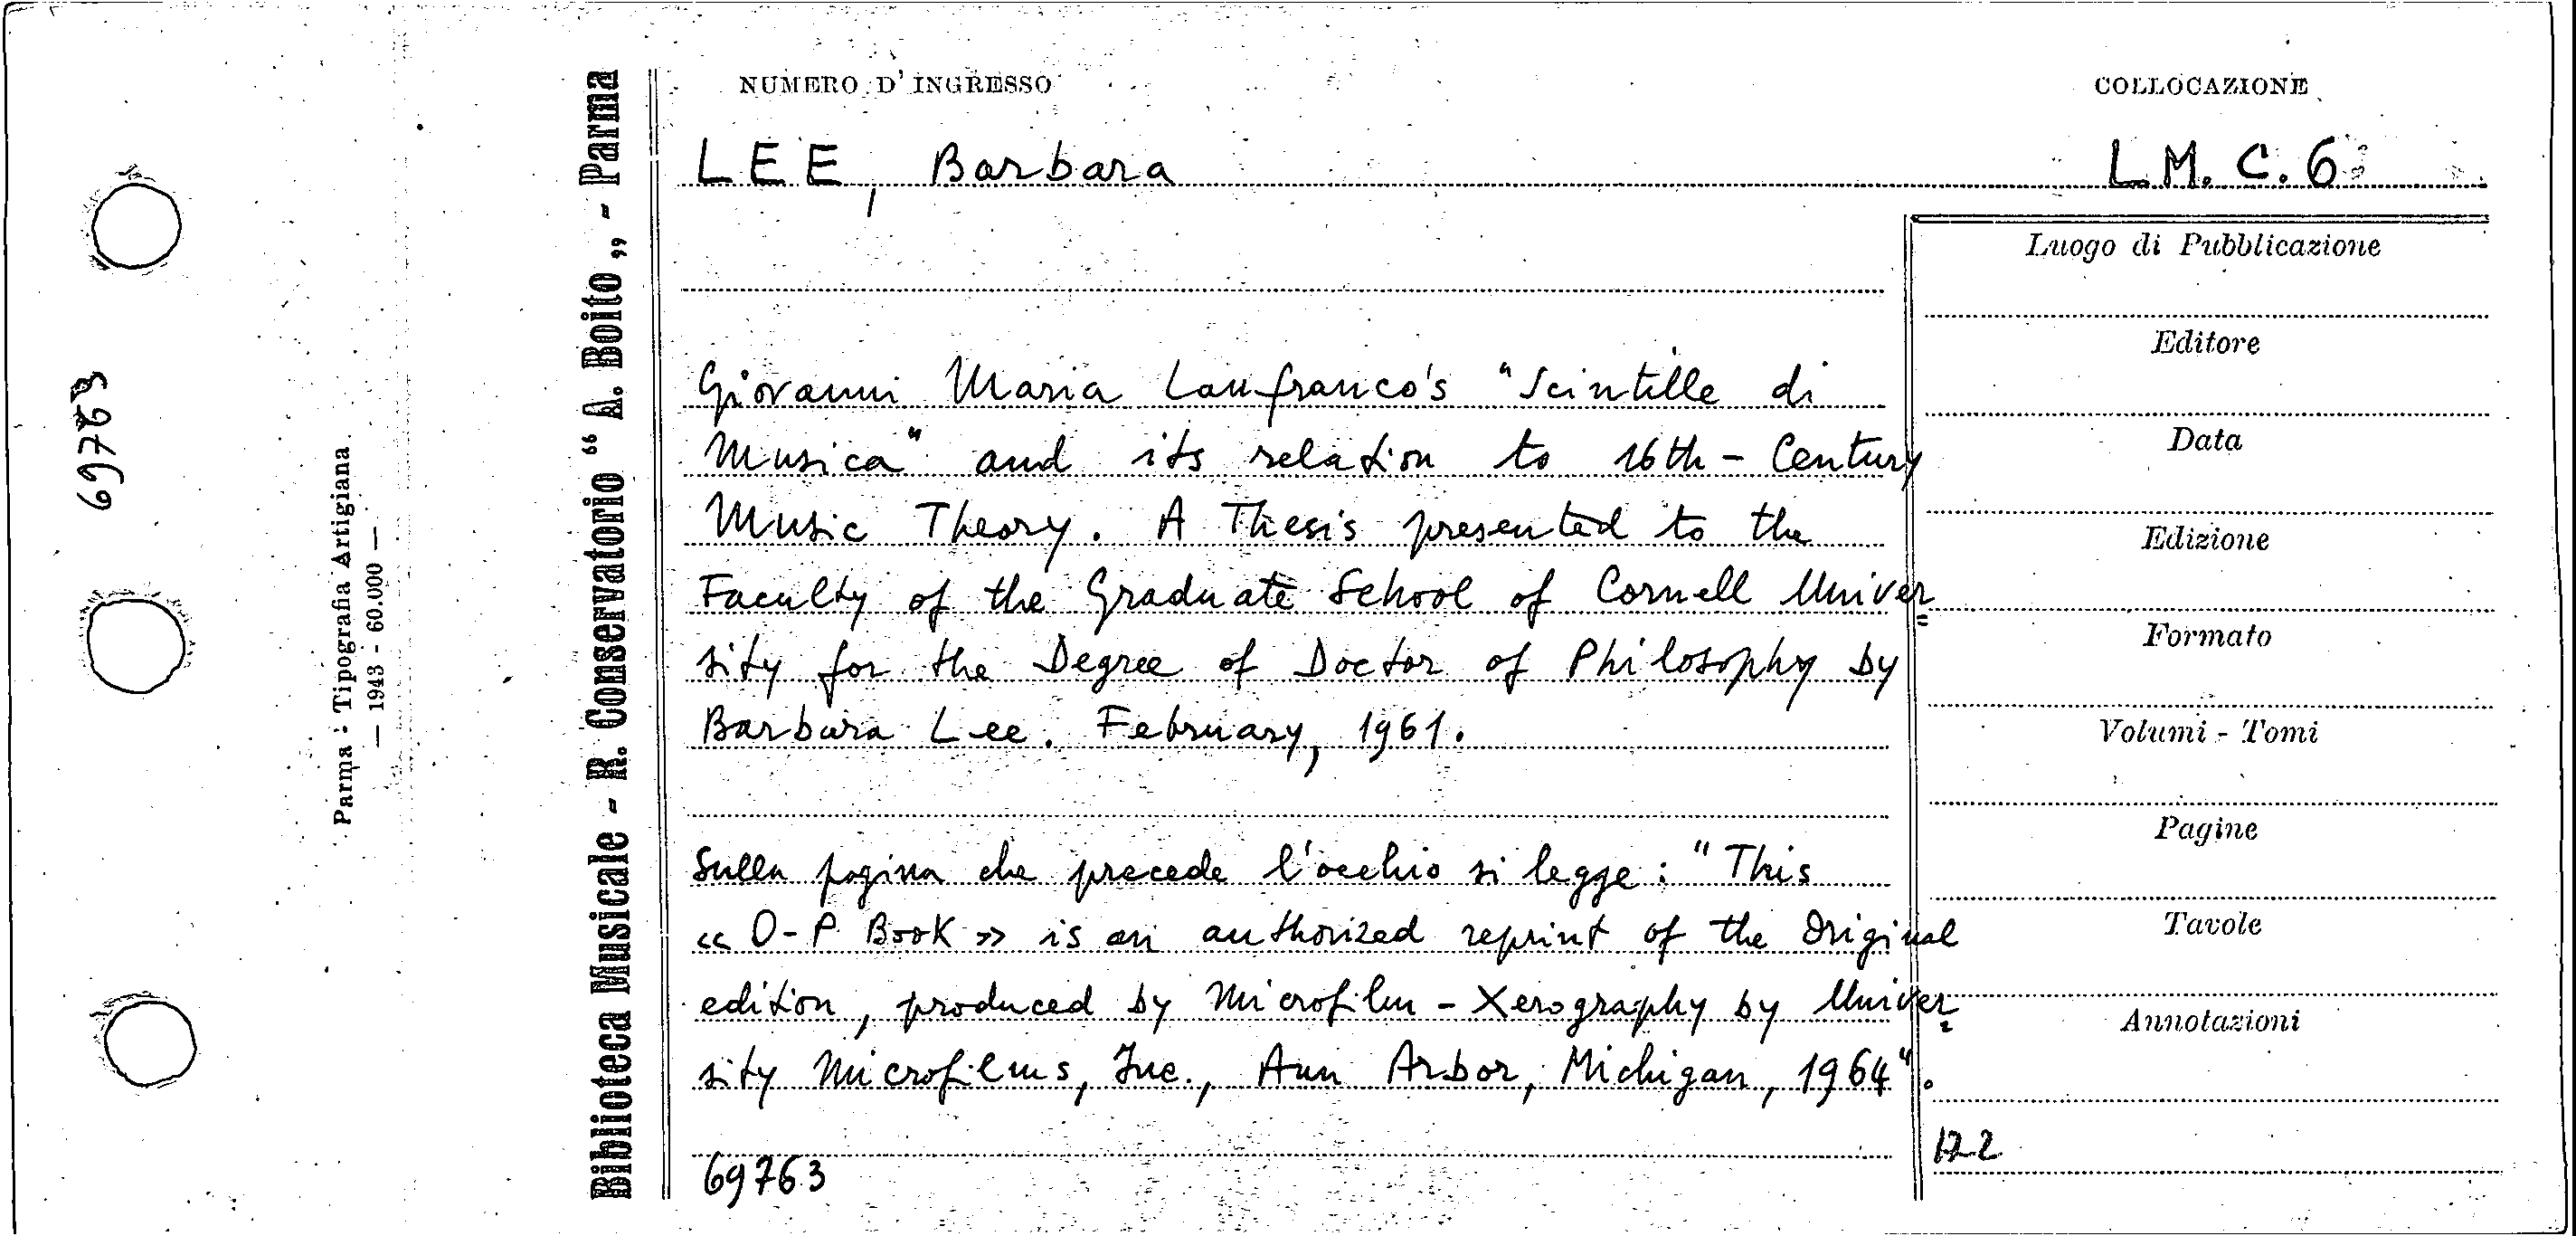 69763
Parma - Tipografia Artigiana
— 1943 - 60.000 —
Biblioteca Musicale - R. Conservatorio “ A. Boito „ - Parma
NUMERO D'INGRESSO
COLLOCAZIONE
LEE, Barbara
L.M. C. 6
Giovanni Maria Lanfranco's "Scintille di
Musica" and its relation to 16th - Century
Music Theory. A Thesis presented to the
Faculty of the Graduate School of Cornell Univer=
sity for the Degree of Doctor of Philosophy by
Barbara Lee. February, 1961.
Sulla pagina che precede l'occhio si legge: "This
« O-P Book » is an authorized reprint of the Original
edition, produced by Microfilm - Xerography by Univer=
sity Microfilms, Inc., Ann Arbor, Michigan, 1964".
69763
Luogo di Pubblicazione
Editore
Data
Edizione
Formato
Volumi - Tomi
Pagine
Tavole
Annotazioni